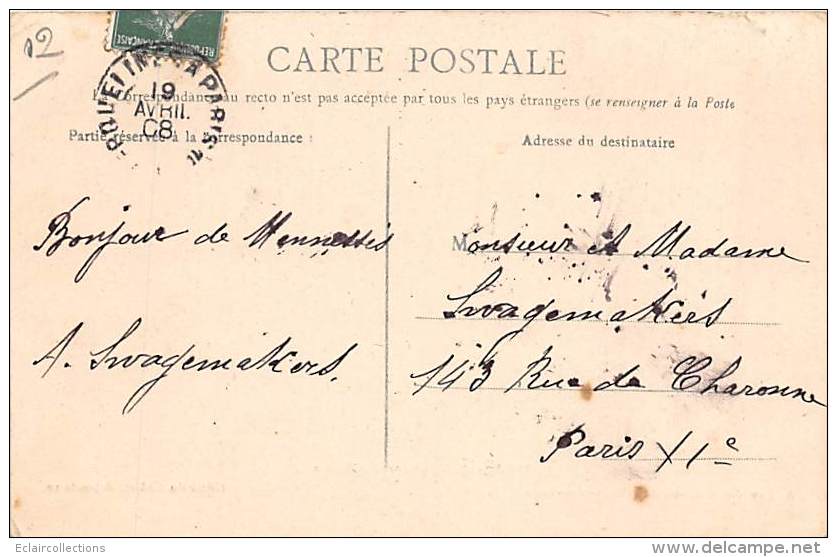 02
RÉPUBLIQUE FRANÇAISE
CARTE POSTALE
La Correspondance au recto n'est pas acceptée par tous les pays étrangers (se renseigner à la Poste
19
AVRIL
08
A PARIS
Partie réservée à la correspondance :
Adresse du destinataire
Bonjour de
Monsieur et Madame
Swagemakers
A. Swagemakers.
143 Rue de Charonne
Paris XIe
Eclaircollections
delcampe.net